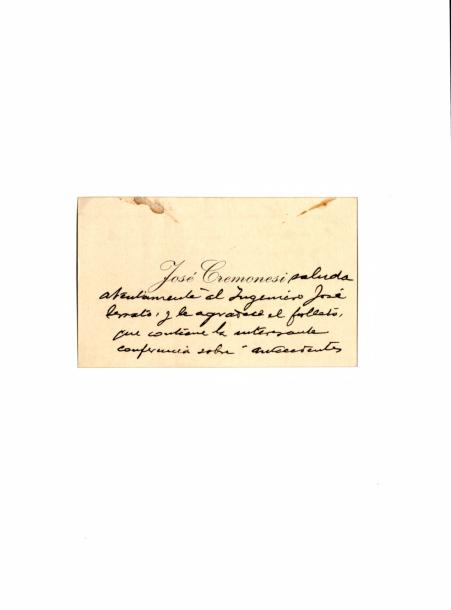 José Cremonesi saluda
atentamente al Ingeniero José
Serrato, y le agradece el folleto,
que contiene la interesante
conferencia sobre "antecedentes